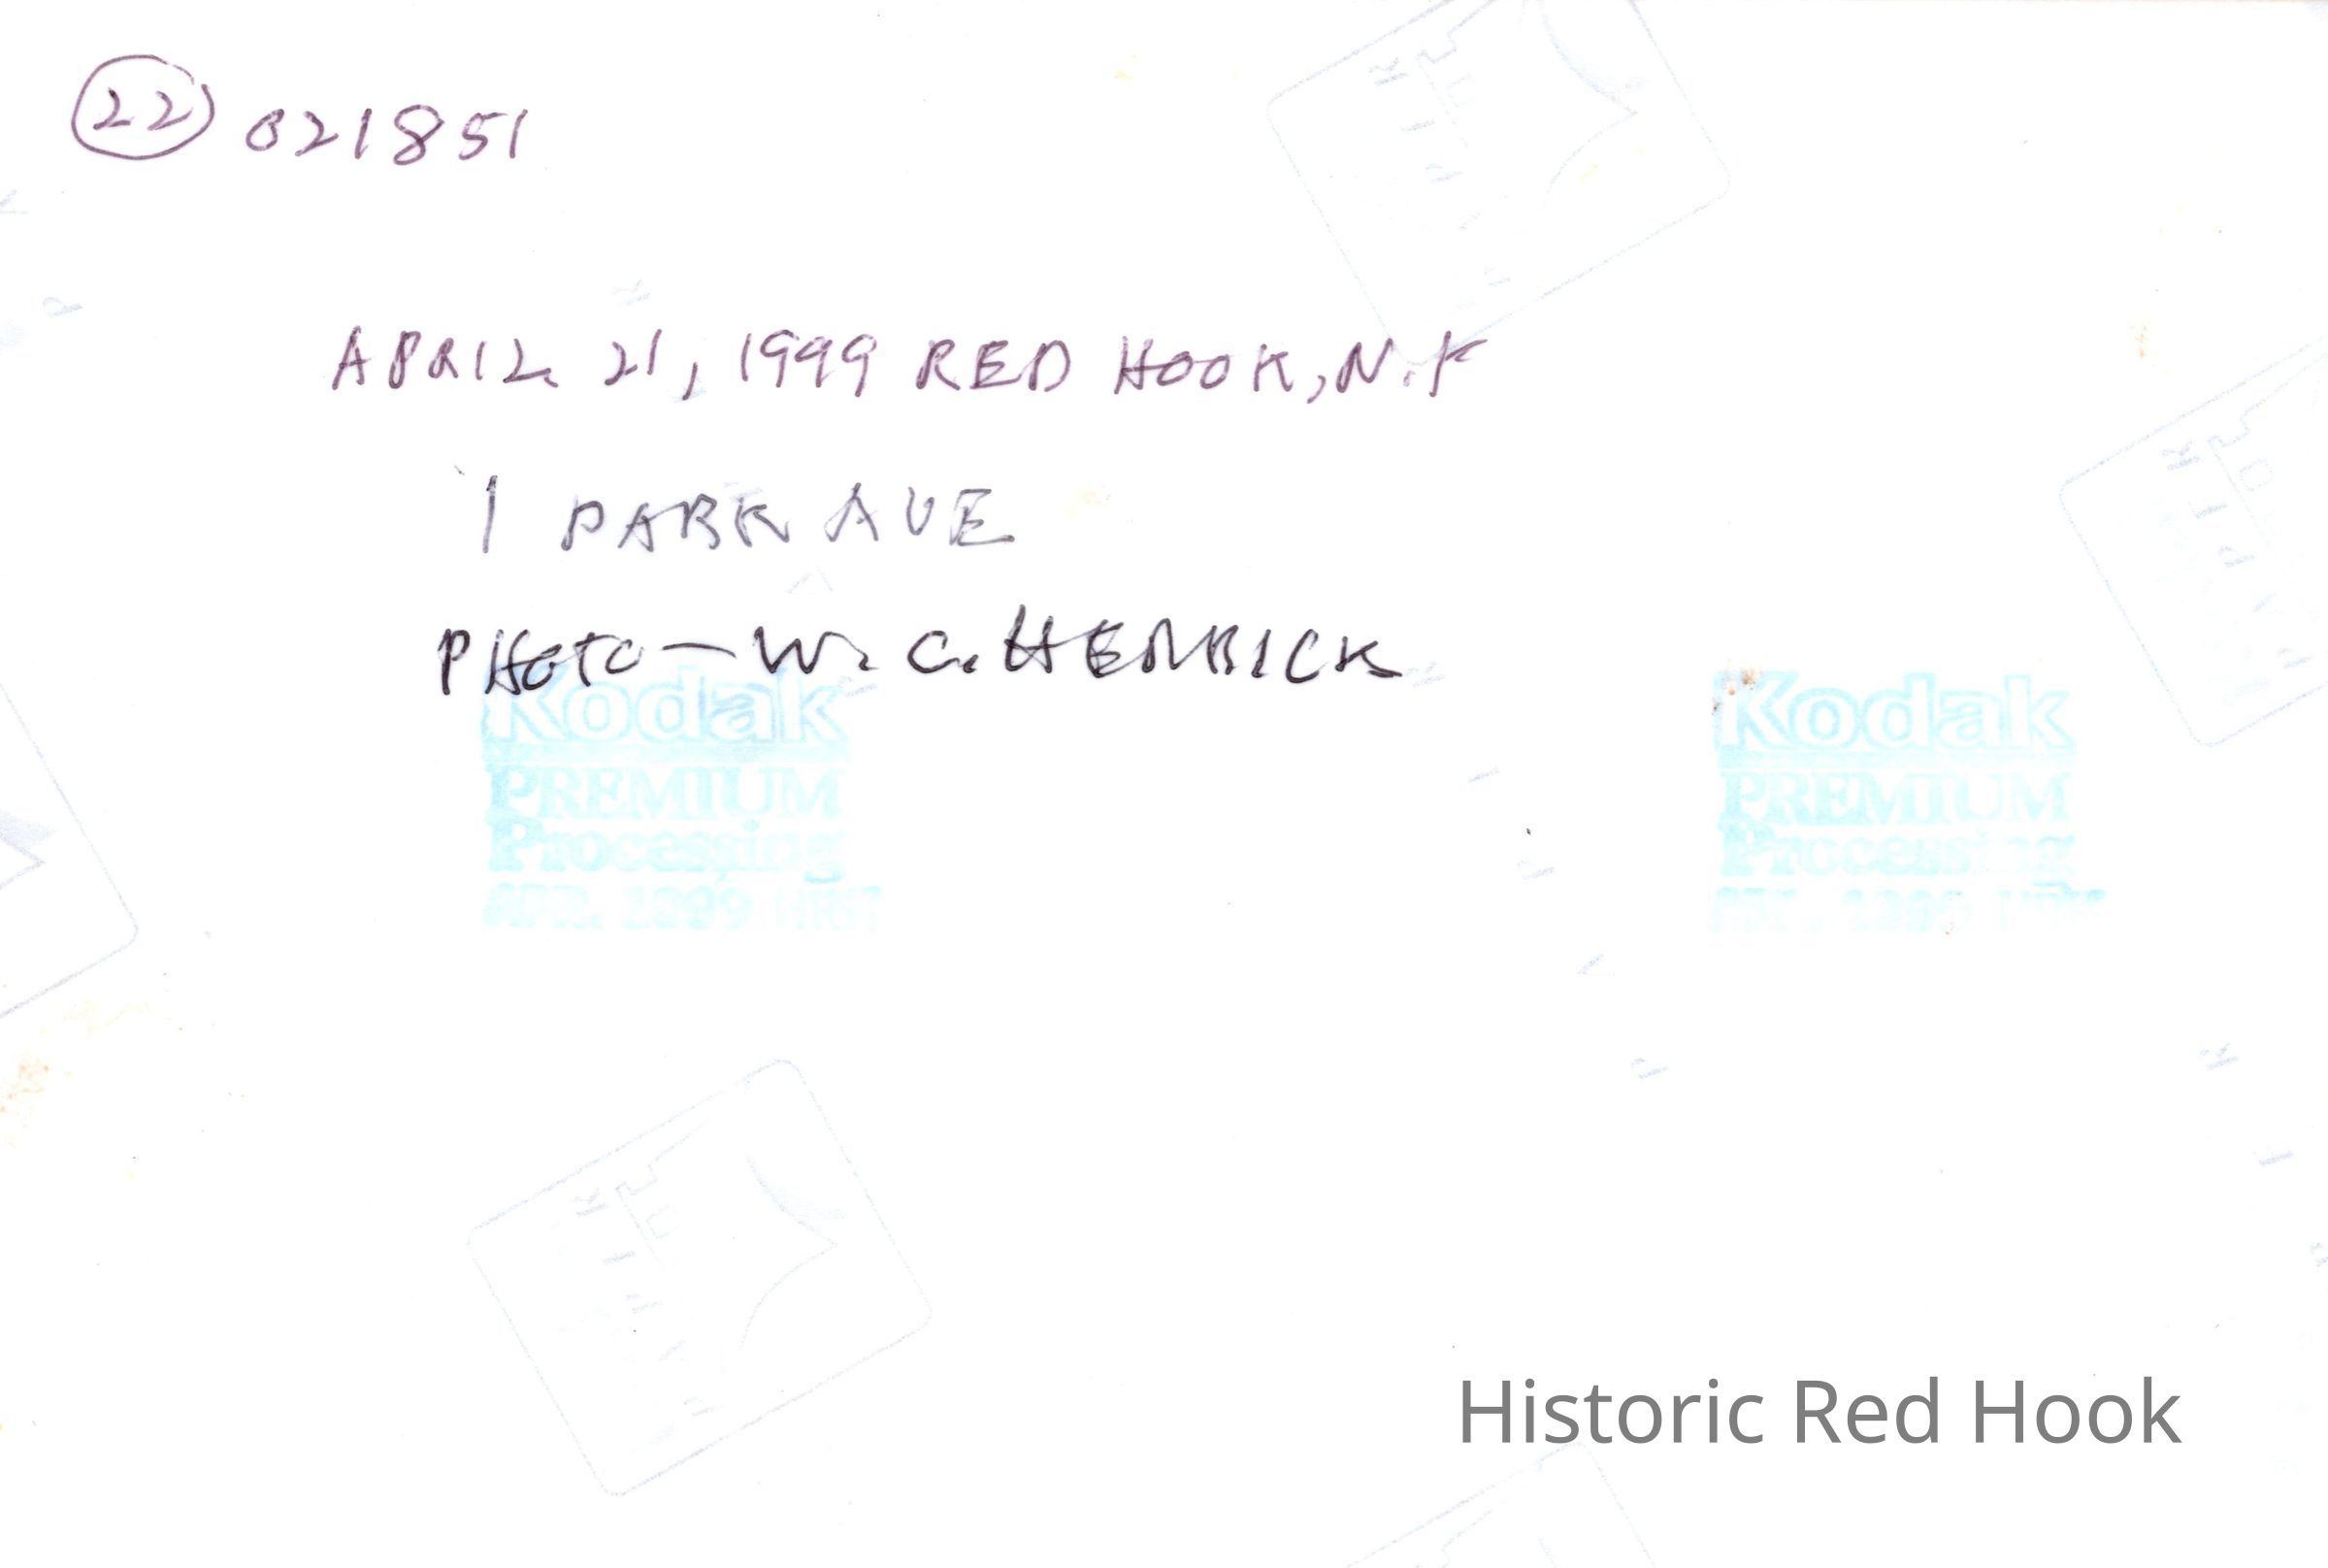 (22) 021851
APRIL 21, 1999 RED HOOK, N.Y
1 PARK AVE
PHOTO — W. C. HENRICK
Kodak Kodak
PREMIUM PREMIUM
Processing Processing
APR. 1999
Historic Red Hook